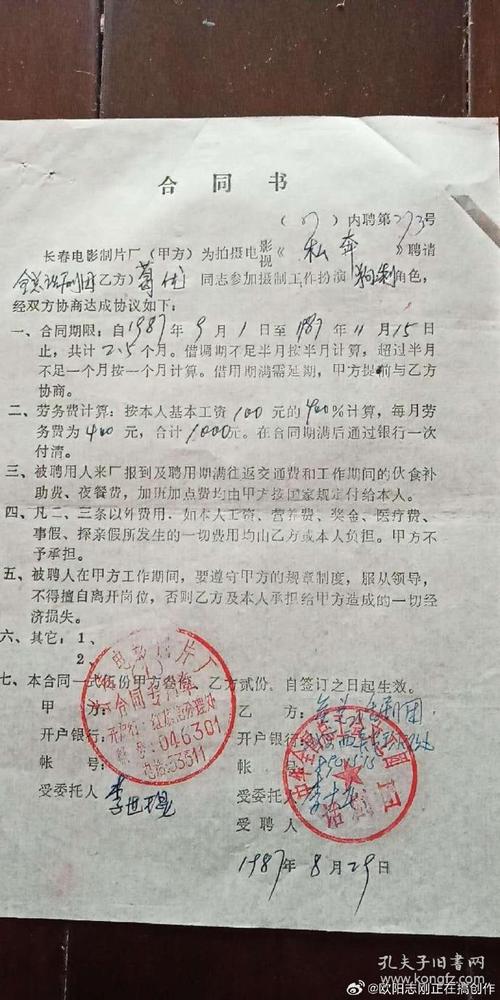 合同书
(87)内聘第273号
长春电影制片厂(甲方)为拍摄电影视《私奔》聘请
全总话剧团乙方)葛优同志参加摄制工作扮演 角色,
经双方协商达成协议如下:
一、合同期限:自1987年9月1日至1987年11月15日
止,共计2.5个月。借调期不足半月按半月计算,超过半月
不足一个月按一个月计算。借用期满需延期,甲方提前与乙方
协商。
二、劳务费计算:按本人基本工资100元的400%计算,每月劳
务费为400元,合计1000元。在合同期满后通过银行一次
付清。
三、被聘用人来厂报到及聘用期满往返交通费和工作期间的伙食补
助费、夜餐费,加班加点费均由甲方按国家规定付给本人。
四、凡二、三条以外费用,如本人工资、营养费、奖金、医疗费、
事假、探亲假所发生的一切费用均由乙方或本人负担。甲方不
予承担。
五、被聘人在甲方工作期间,要遵守甲方的规章制度,服从领导,
不得擅自离开岗位,否则乙方及本人承担给甲方造成的一切经
济损失。
六、其它:1、
2、
七、本合同一式伍份甲方叁份,乙方贰份,自签订之日起生效。
甲方: 乙方:全总话剧团
开户银行: 开户银行:
帐号: 帐号:
受委托人 受委托人
受聘人
合同专用章
046301
电话:53511
话剧团
1987年8月29日
孔夫子旧书网
kongfz.com
@欧阳志刚正在搞创作